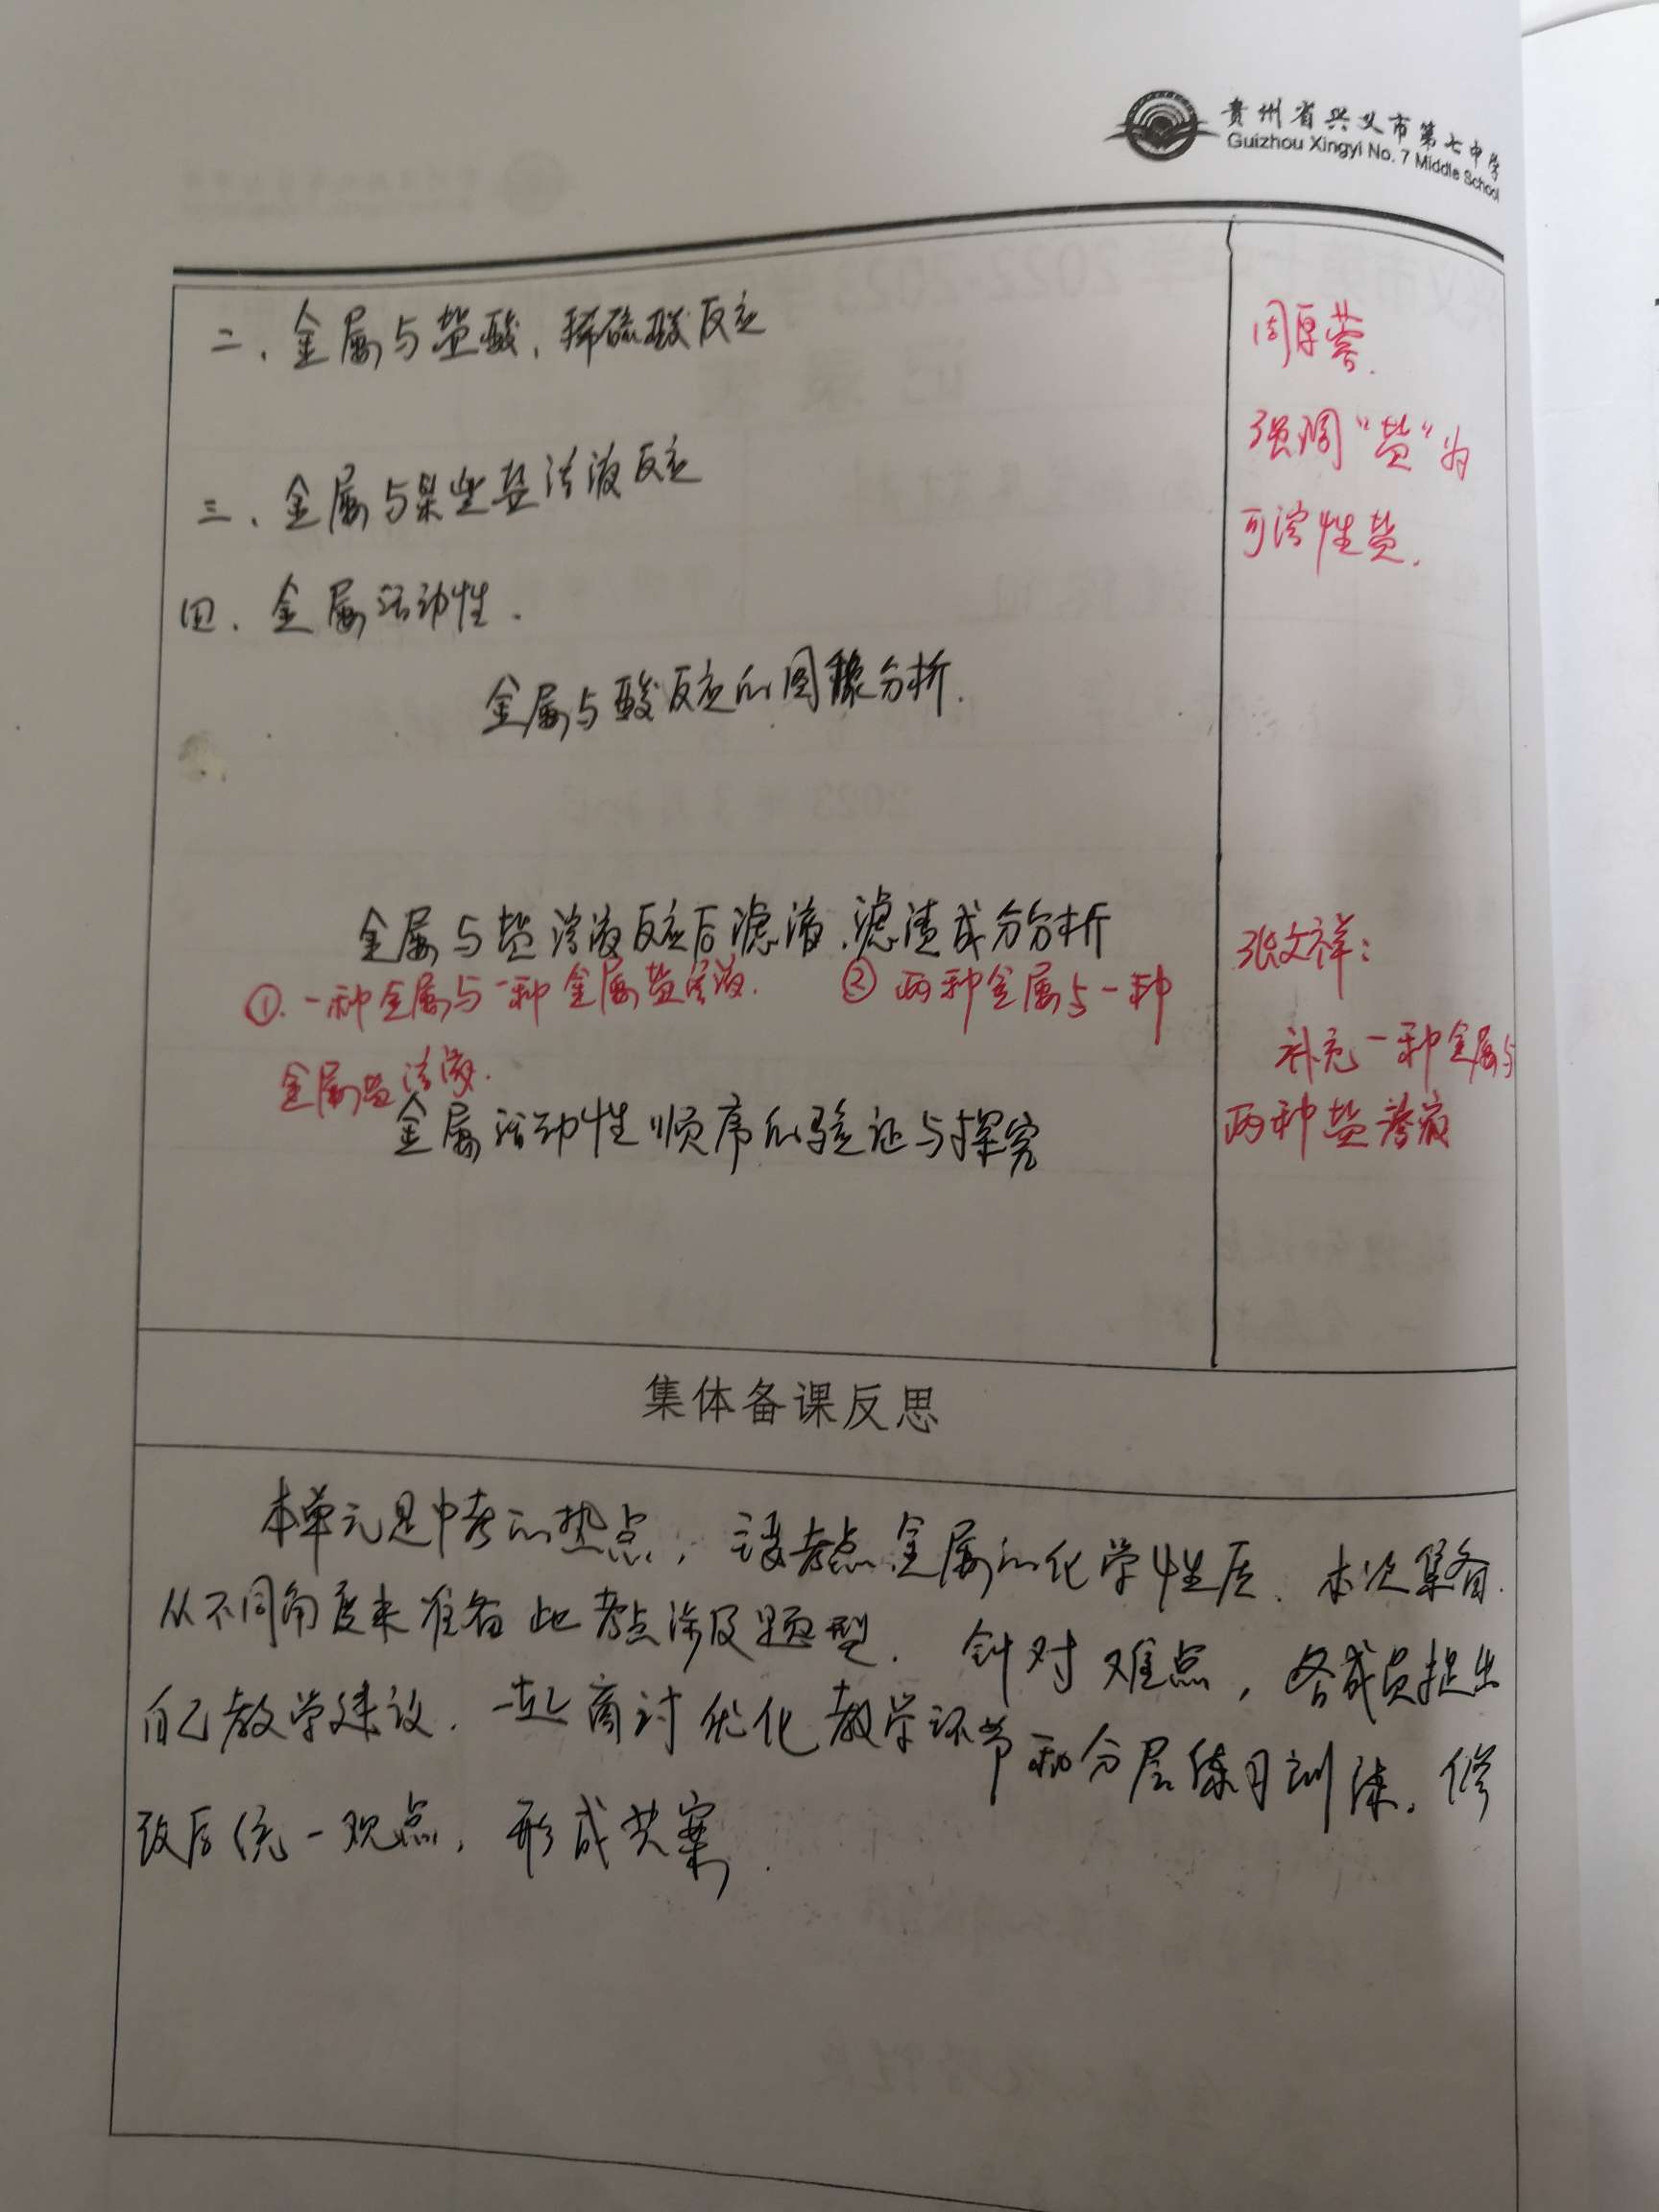 贵州省兴义市第七中学
Guizhou Xingyi No. 7 Middle School
二、金属与盐酸、稀硫酸反应
三、金属与某些盐溶液反应
四、金属活动性.
金属与酸反应的图像分析.
金属与盐溶液反应后滤液、滤渣成分分析
①.一种金属与一种金属盐溶液. ②两种金属与一种
金属盐溶液.
金属活动性顺序的验证与探究
周厚
强调“盐”为
可溶性盐.
张文祥：
补充一种金属与
两种盐溶液
集体备课反思
本单元是中考的热点，该考点金属的化学性质、本次集备.
从不同角度来准备此考点涉及题型. 针对难点，各成员提出
自己教学建议. 一起商讨优化教学环节和分层练习训练。修
改后统一观点，形成共案.